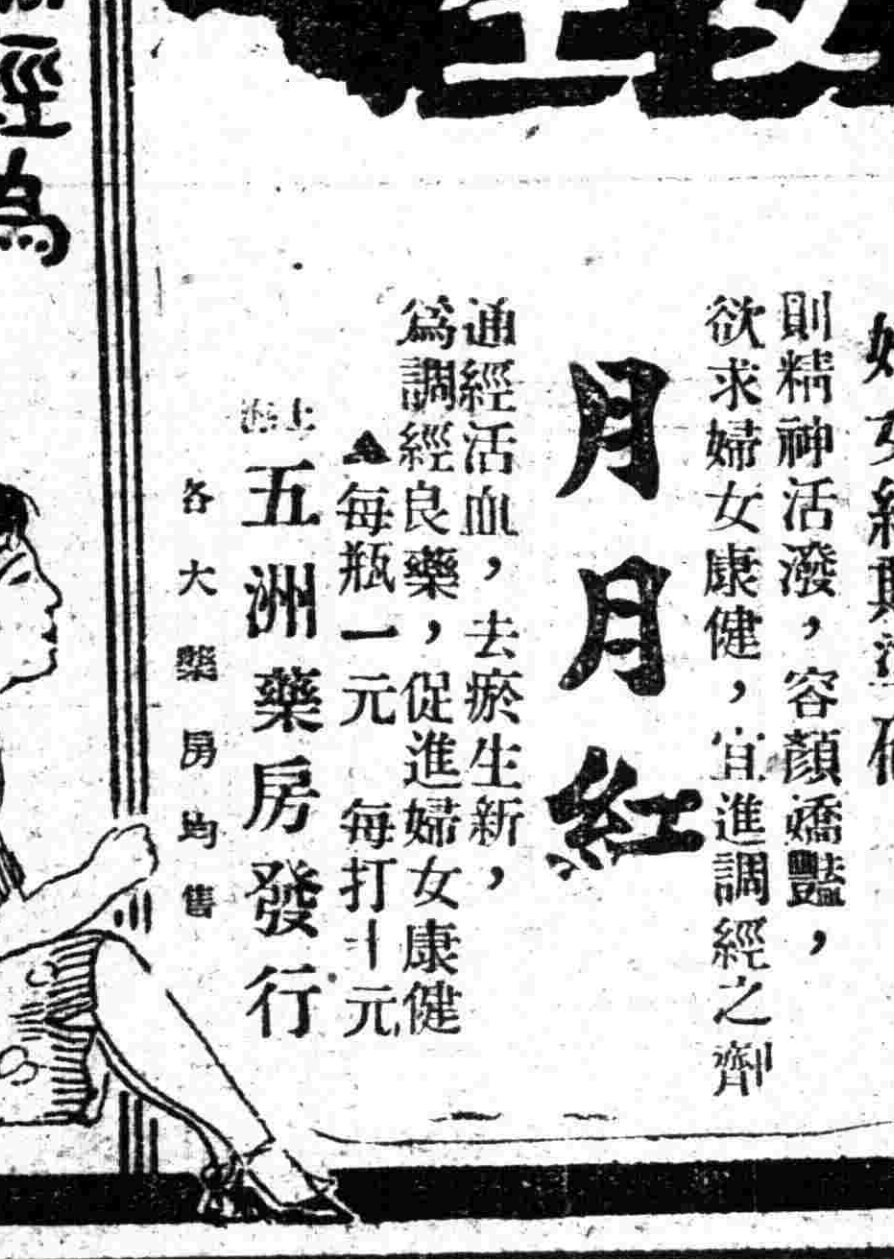 婦女經期準確
則精神活潑，容顏嬌豔，
欲求婦女康健，宜進調經之劑
月月紅
通經活血，去瘀生新，
爲調經良藥，促進婦女康健
▲每瓶一元　每打十元
上海
五洲藥房發行
各大藥房均售
經為